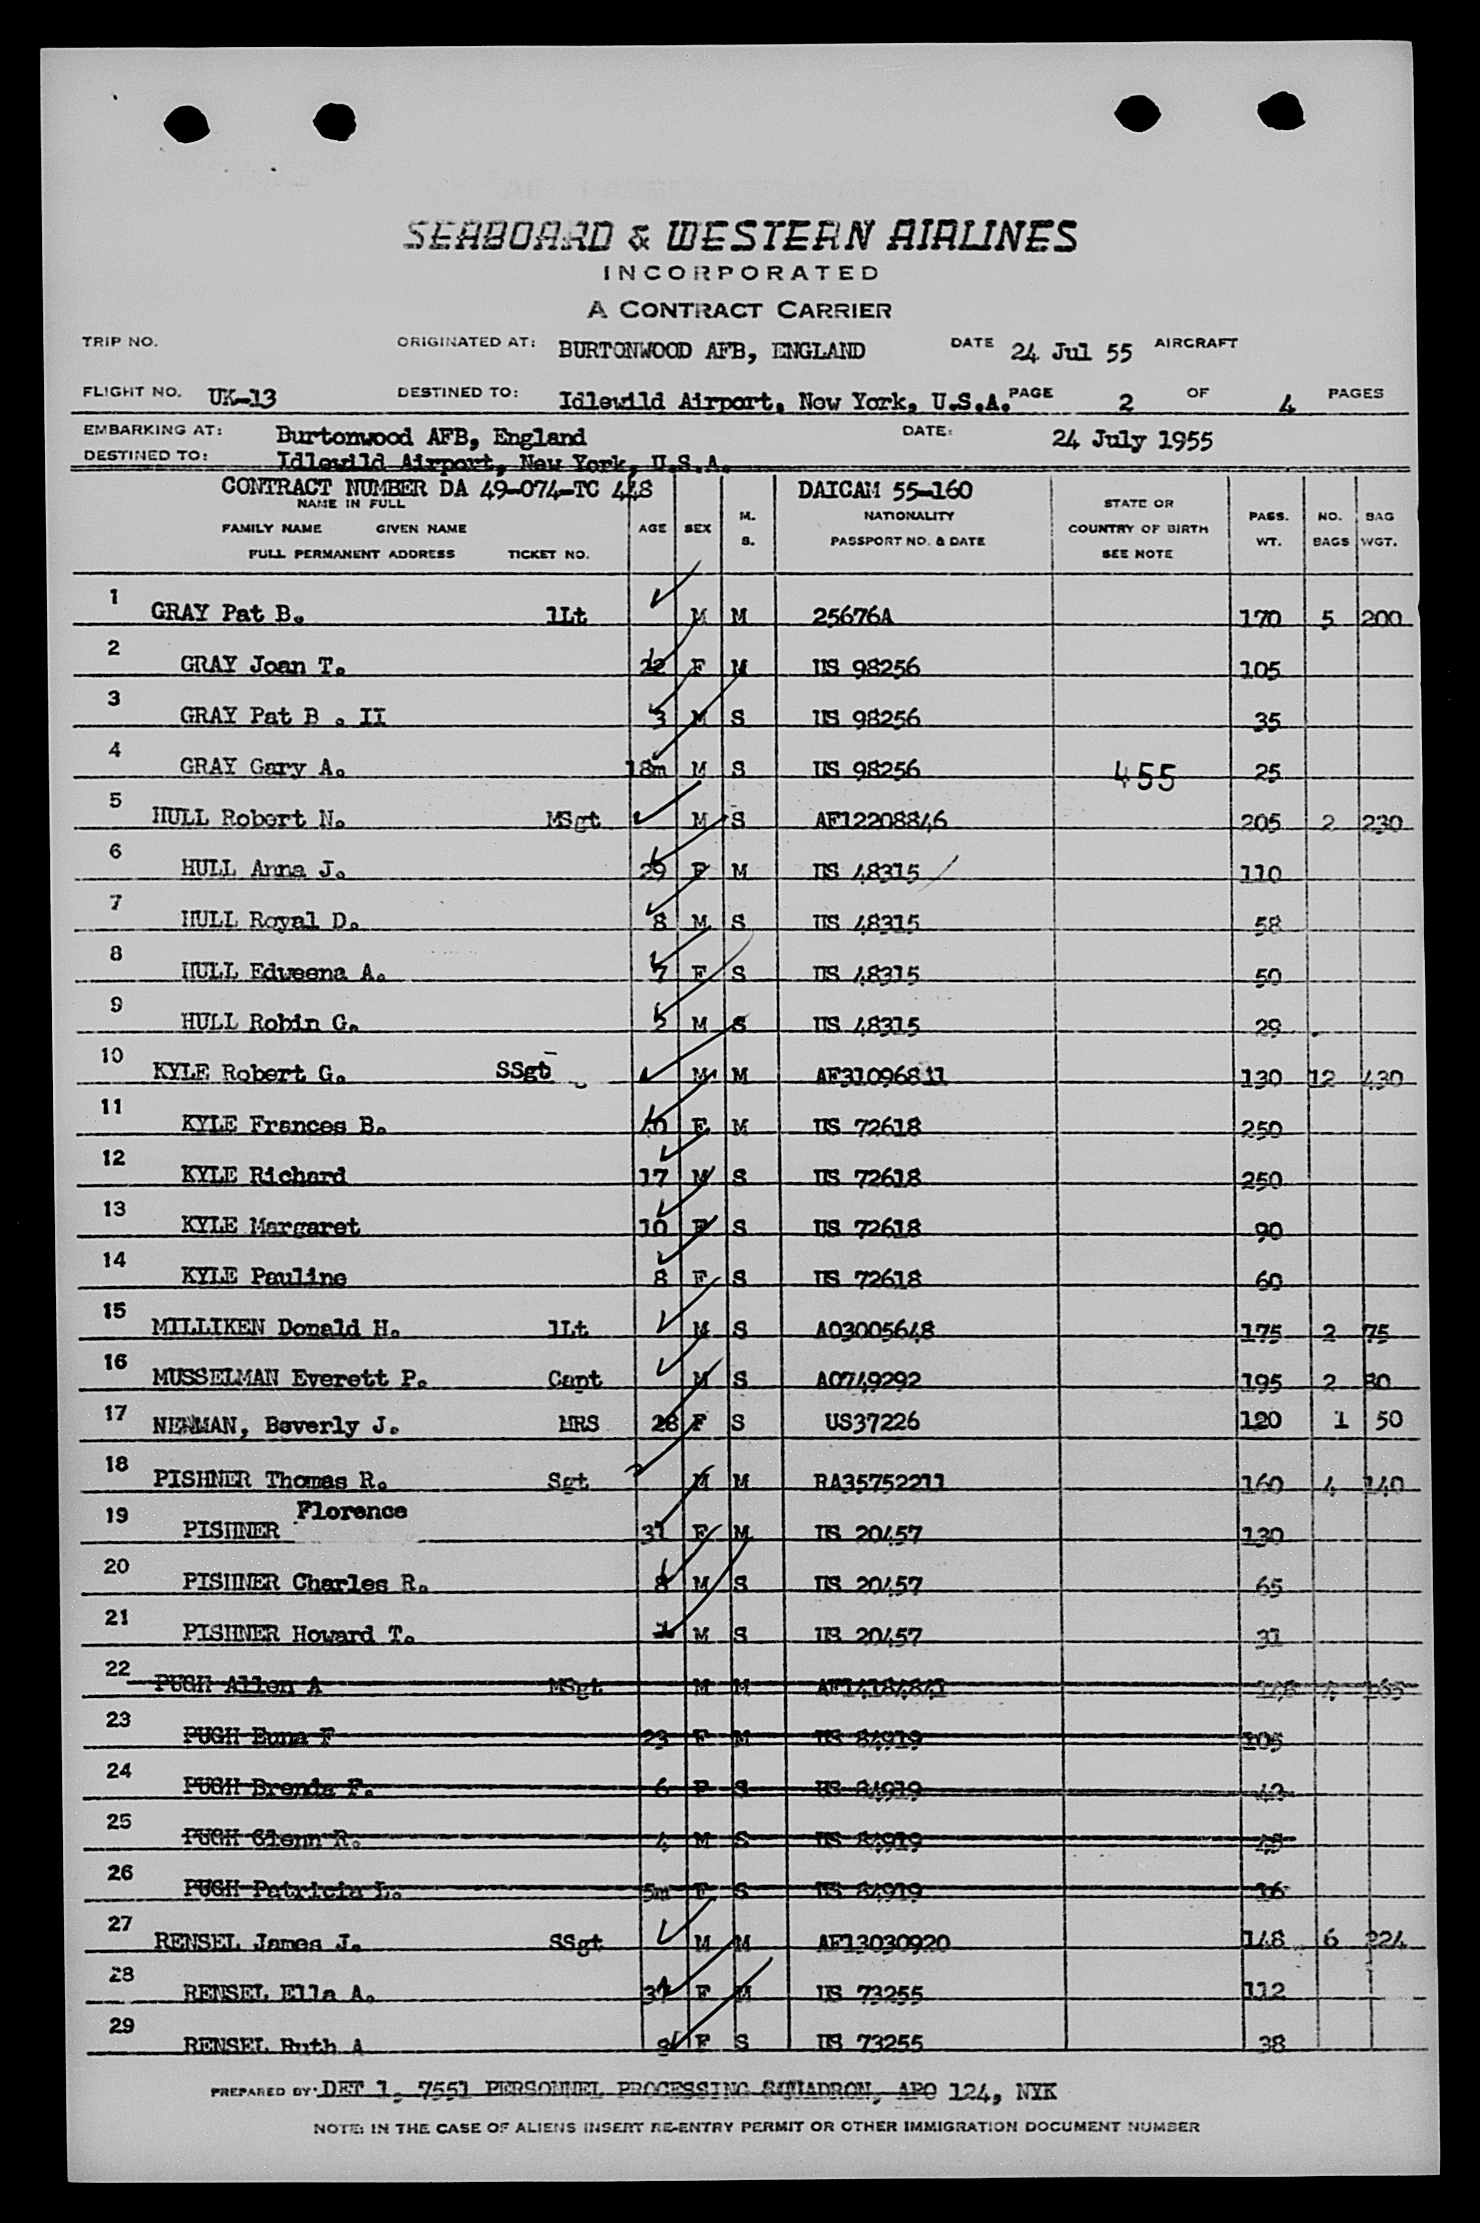 SEABOARD & WESTERN AIRLINES
INCORPORATED
A CONTRACT CARRIER
TRIP NO. ORIGINATED AT: BURTONWOOD AFB, ENGLAND DATE 24 Jul 55 AIRCRAFT
FLIGHT NO. UK-13 DESTINED TO: Idlewild Airport, New York, U.S.A. PAGE 2 OF 4 PAGES
EMBARKING AT: Burtonwood AFB, England DATE: 24 July 1955
DESTINED TO: Idlewild Airport, New York, U.S.A.
CONTRACT NUMBER DA 49-074-TC 448 DAICAM 55-160
NAME IN FULL NATIONALITY STATE OR
FAMILY NAME GIVEN NAME AGE SEX M. S. PASSPORT NO. & DATE COUNTRY OF BIRTH PASS. WT. NO. BAGS BAG WGT.
FULL PERMANENT ADDRESS TICKET NO. SEE NOTE
1 GRAY Pat B. 1Lt M M 25676A 170 5 200
2 GRAY Joan T. 22 F M US 98256 105
3 GRAY Pat B . II 3 M S US 98256 35
4 GRAY Gary A. 18m M S US 98256 455 25
5 HULL Robert N. MSgt M S AF12208846 205 2 230
6 HULL Anna J. 29 F M US 48315 110
7 HULL Royal D. 8 M S US 48315 58
8 HULL Edweena A. 7 F S US 48315 50
9 HULL Robin G. M S US 48315 29
10 KYLE Robert G. SSgt M M AF31096811 130 12 430
11 KYLE Frances B. 40 F M US 72618 250
12 KYLE Richard 17 M S US 72618 250
13 KYLE Margaret 10 F S US 72618 90
14 KYLE Pauline 8 F S US 72618 60
15 MILLIKEN Donald H. 1Lt M S AO3005648 175 2 75
16 MUSSELMAN Everett P. Capt M S AO749292 195 2 80
17 NEWMAN, Beverly J. MRS 26 F S US37226 120 1 50
18 PISHNER Thomas R. Sgt M M RA35752211 160 4 140
19 PISHNER Florence 31 F M US 20457 130
20 PISHNER Charles R. 8 M S US 20457 65
21 PISHNER Howard T. M S US 20457 31
22 PUGH Allen A MSgt M M AF14184841 148 4 165
23 PUGH Euna F 23 F M US 84919 105
24 PUGH Brenda F. 6 F S US 84919 42
25 PUGH Glenn R. 4 M S US 84919
26 PUGH Patricia L. 5m F S US 84919 16
27 RENSEL James J. SSgt M M AF13030920 148 6 224
28 RENSEL Ella A. F M US 73255 112
29 RENSEL Ruth A F S US 73255 38
PREPARED BY: DET 1, 7551 PERSONNEL PROCESSING SQUADRON, APO 124, NYK
NOTE: IN THE CASE OF ALIENS INSERT RE-ENTRY PERMIT OR OTHER IMMIGRATION DOCUMENT NUMBER